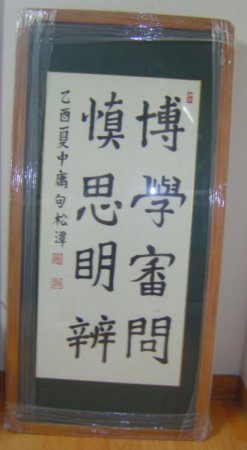 博學審問
慎思明辨
乙酉夏中庸句松潭